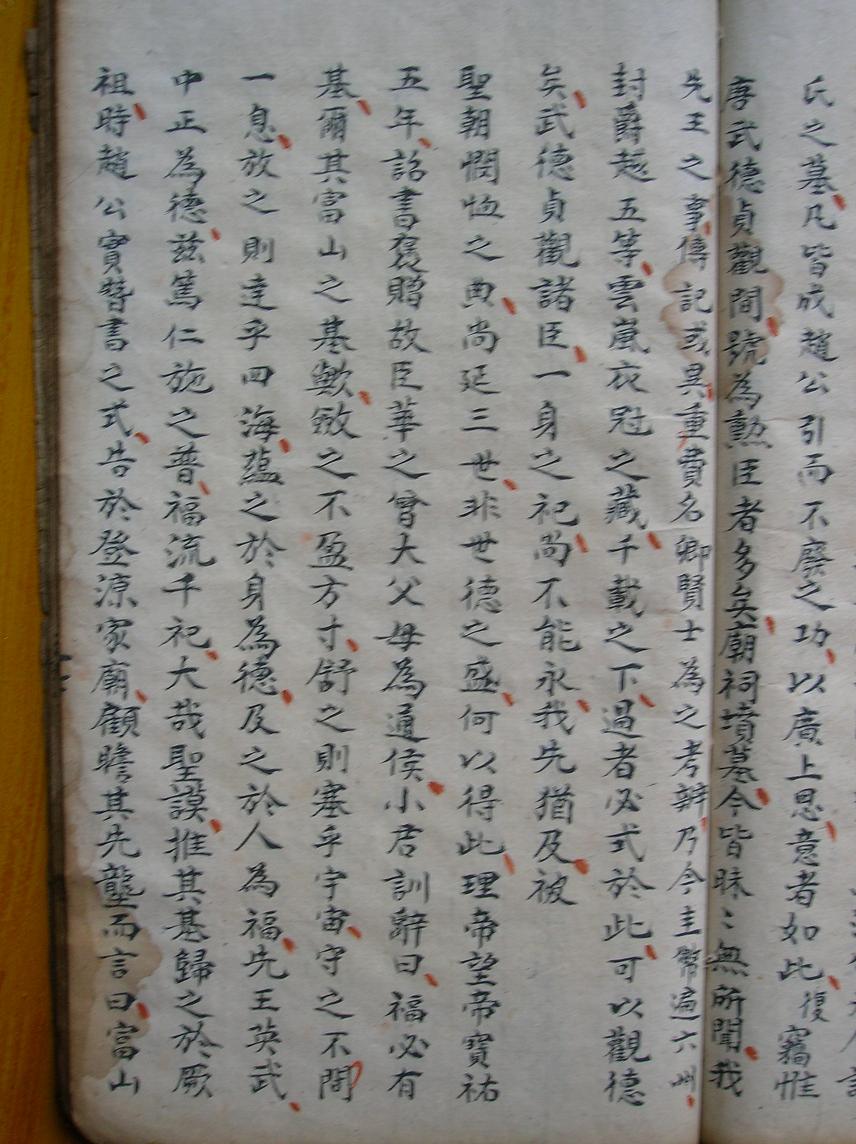 氏之墓凡皆成趙公引而不廢之功以廣上恩意者如此復竊惟
唐武德貞觀間號為勳臣者多矣廟祠墳墓今皆昧〻無所聞我
先王之事傳記或異重費名卿賢士為之考辨乃今圭幣遍六州
封爵越五等雲嵐衣冠之藏千載之下過者必式於此可以觀德
矣武德貞觀諸臣一身之祀尚不能永我先猶及被
聖朝憫恤之典尚延三世非世德之盛何以得此理帝望帝寶祐
五年詔書褒贈故臣華之曾大父母為通侯小君訓辭曰福必有
基爾其富山之基歟斂之不盈方寸舒之則塞乎宇宙守之不間
一息放之則達乎四海蘊之於身為德及之於人為福先王英武
中正為德茲篤仁施之普福流千祀大哉聖謨推其基歸之於厥
祖時趙公實督書之式告於登源家廟顧瞻其先壟而言曰富山